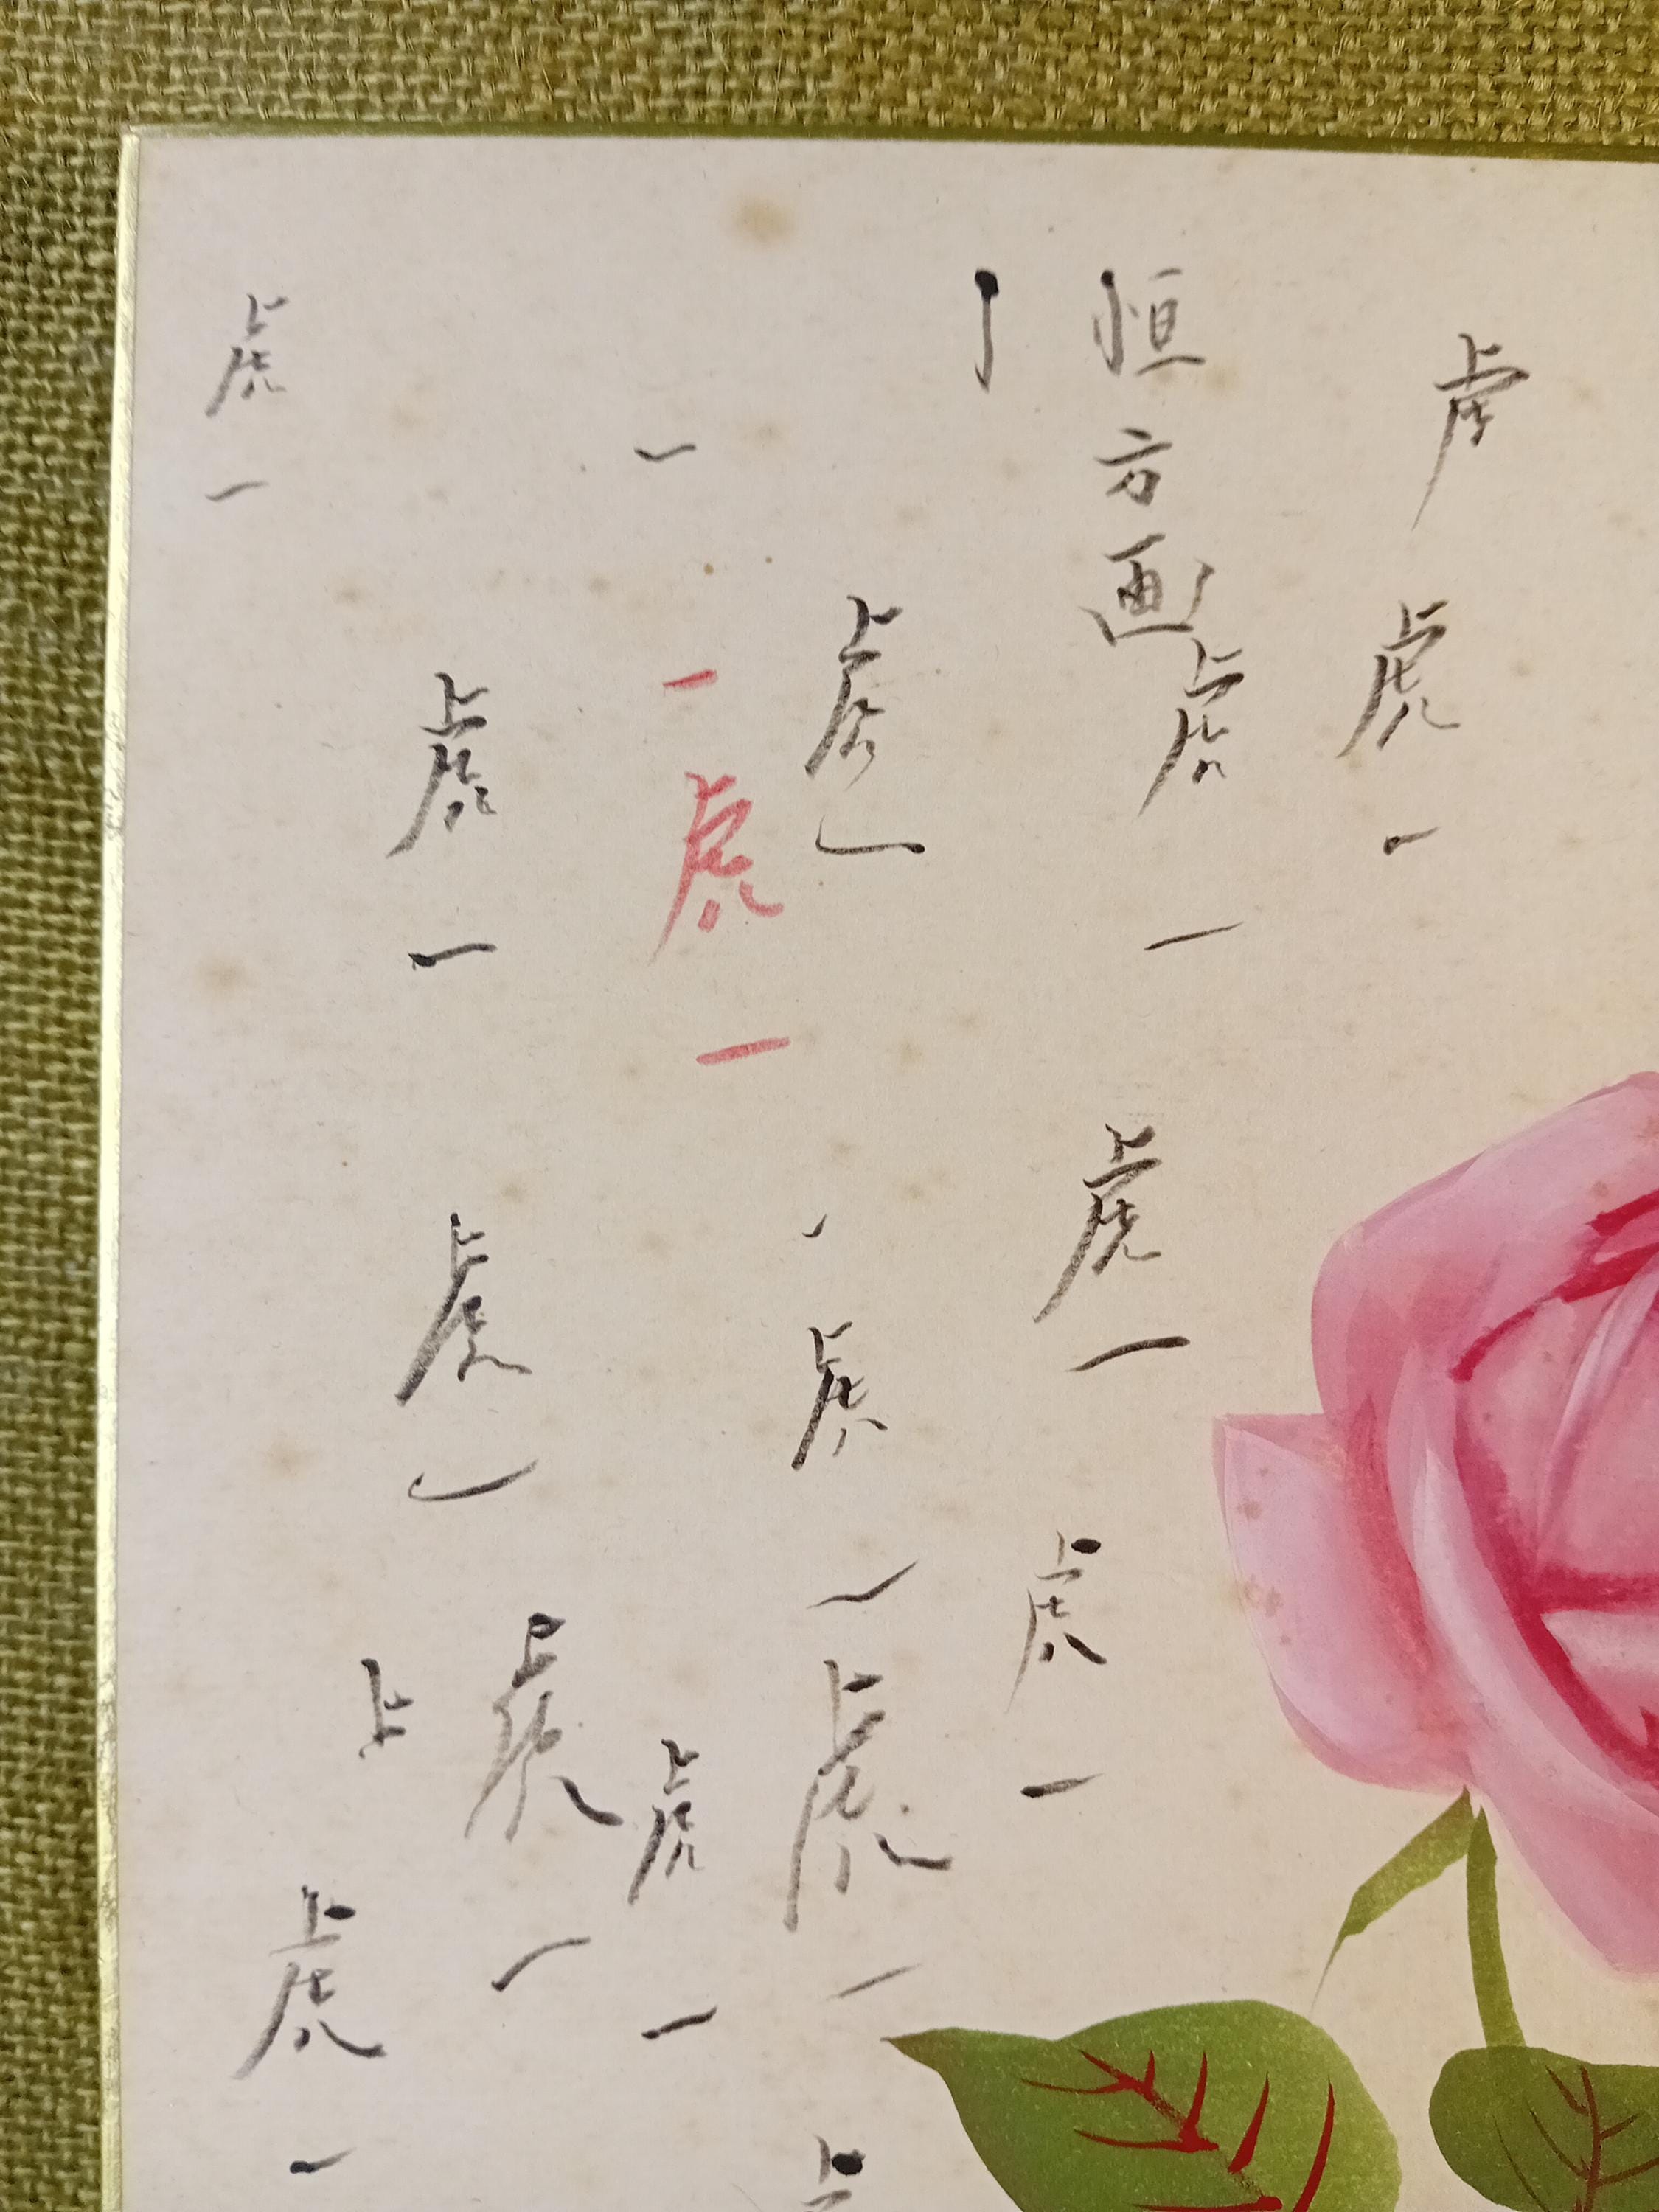 虎
虎一
恒方画
虎一
虎一
虎一
虎一
虎一
虎一
一
一虎一
虎一
虎一
虎一
虎一
虎一
虎一